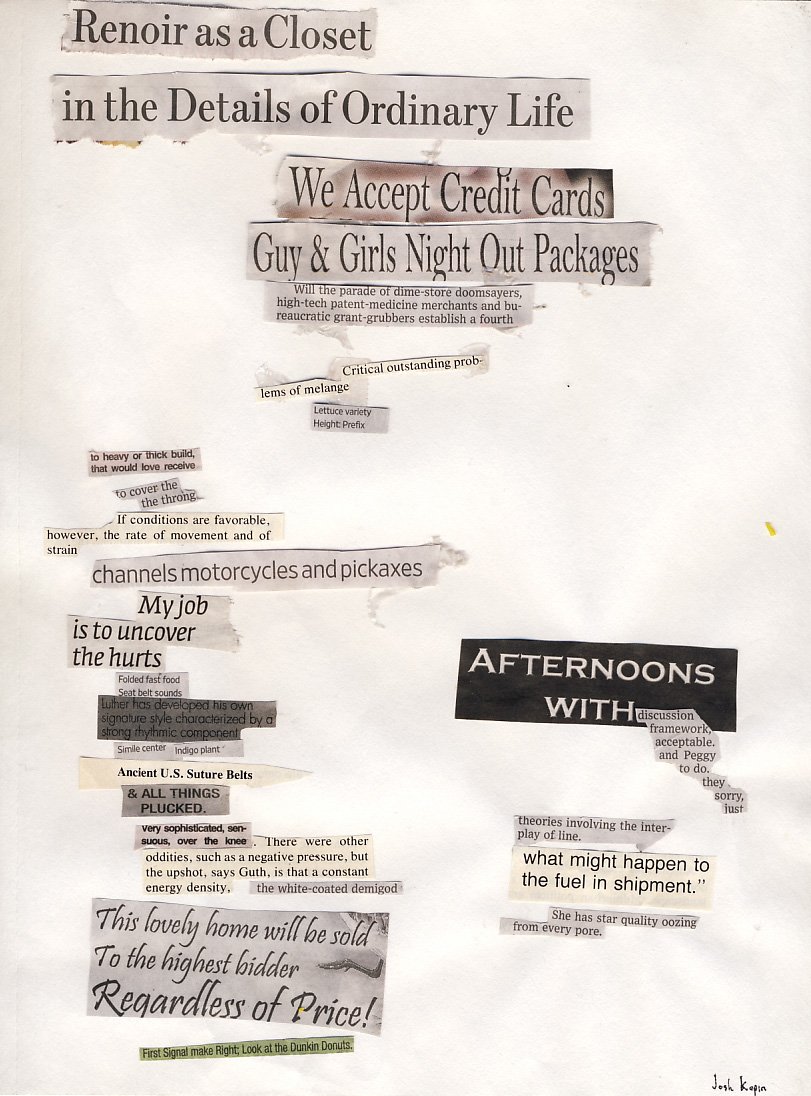 Renoir as a Closet
in the Details of Ordinary Life
We Accept Credit Cards
Guy & Girls Night Out Packages
Will the parade of dime-store doomsayers,
high-tech patent-medicine merchants and bu-
reaucratic grant-grubbers establish a fourth
Critical outstanding prob-
lems of melange
Lettuce variety
Height: Prefix
to heavy or thick build,
that would love receive
to cover the
the throng
If conditions are favorable,
however, the rate of movement and of
strain
channels motorcycles and pickaxes
My job
is to uncover
the hurts
Folded fast food
Seat belt sounds
Luther has developed his own
signature style characterized by a
strong rhythmic component
Simile center Indigo plant
Ancient U.S. Suture Belts
& ALL THINGS
PLUCKED.
very sophisticated, sen-
suous, over the knee . There were other
oddities, such as a negative pressure, but
the upshot, says Guth, is that a constant
energy density, the white-coated demigod
This lovely home will be sold
To the highest bidder
Regardless of Price!
First Signal make Right; Look at the Dunkin Donuts.
AFTERNOONS
WITH
discussion
framework,
acceptable.
and Peggy
to do.
they
sorry,
just
theories involving the inter-
play of line.
what might happen to
the fuel in shipment."
She has star quality oozing
from every pore.
Josh Kopin